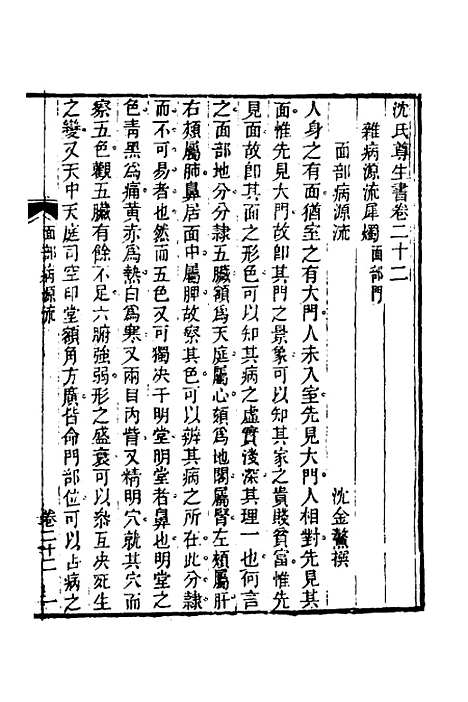 沈氏尊生書卷二十二
雜病源流犀燭面部門
面部病源流
沈金鰲撰
人身之有面猶室之有大門人未入室先見大門人相對先見其
面惟先見大門故卽其門之景象可以知其家之貴賤貧富惟先
見面故卽其面之形色可以知其病之虛實後深其理一也何言
之面部地分分隸五臟額爲天庭屬心頦爲地閣屬腎左頰屬肝
右頰屬肺鼻居面中屬脾故察其色可以辨其病之所在此分隸
而不可易者也然而五色又可獨決于明堂明堂者鼻也明堂之
色青黑爲痛黃赤爲熱白爲寒又兩目內眥又精明穴就其穴而
察五色觀五臟有餘不足六腑強弱形之盛衰可以叅互決死生
之變又天中天庭司空印堂額角方廣皆命門部位可以占病之
面部病源流
卷二十二
一